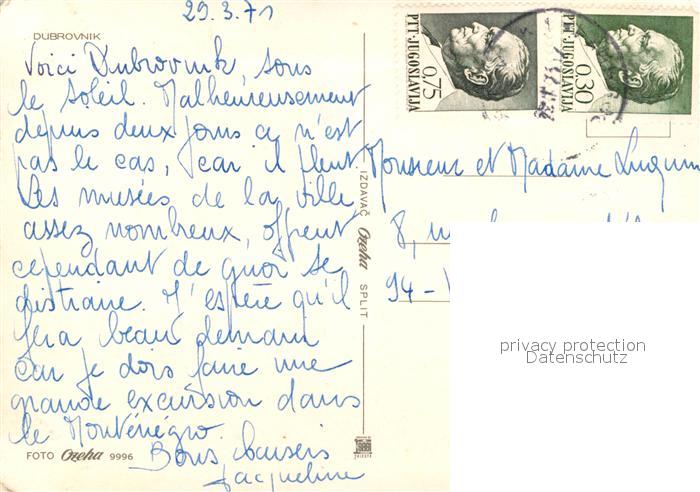 29.3.71
DUBROVNIK
Voici Dubrovnik, sous
le soleil. Malheureusement
depuis deux jours ce n'est
pas le cas, car il pleut.
Les musées de la ville
assez nombreux, offrent
cependant de quoi se
distraire. J'espère qu'il
fera beau demain
car je dois faire une
grande excursion dans
le Monténégro.
Bons baisers
Jacqueline
FOTO Ozeha 9996
IZDAVAČ Ozeha SPLIT
PTT-JUGOSLAVIJA
0,75
PTT-JUGOSLAVIJA
0,30
Monsieur et Madame
8,
94 -
privacy protection
Datenschutz